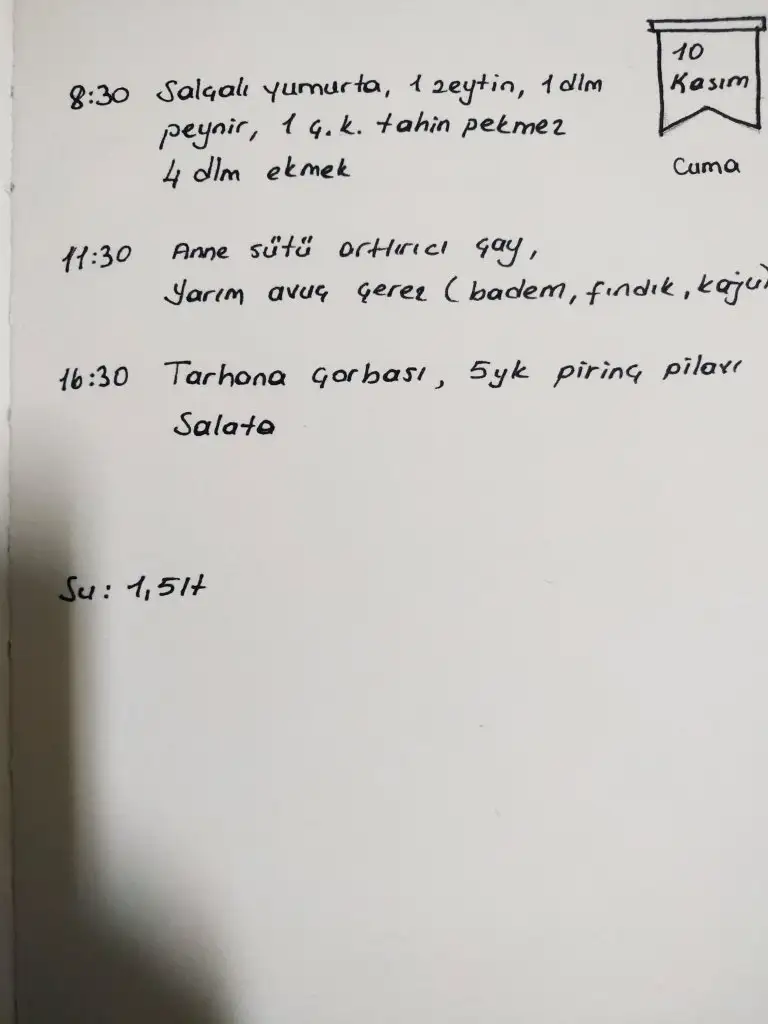 10
Kasım
Cuma
8:30 Salçalı yumurta, 1 zeytin, 1 dlm
peynir, 1 ç.k. tahin pekmez
4 dlm ekmek
11:30 Anne sütü arttırıcı çay,
Yarım avuç çerez (badem, fındık, kaju)
16:30 Tarhana çorbası, 5yk pirinç pilavı
Salata
Su: 1,5lt